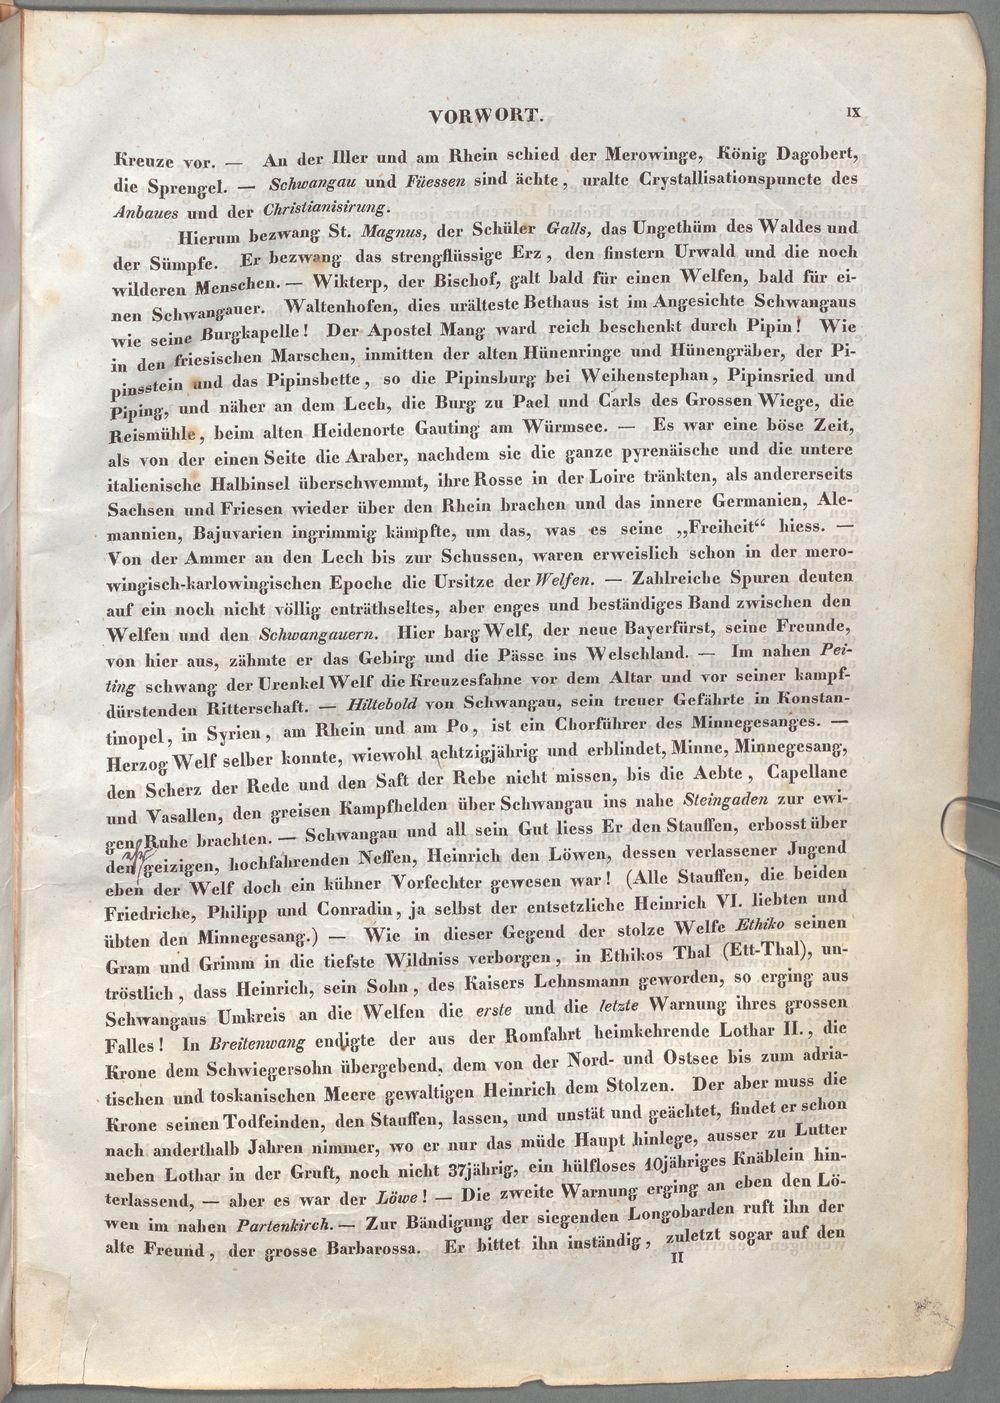 VORWORT. IX
Kreuze vor. — An der Iller und am Rhein schied der Merowinge, König Dagobert,
die Sprengel. — Schwangau und Füessen sind ächte, uralte Crystallisationspuncte des
Anbaues und der Christianisirung.
Hierum bezwang St. Magnus, der Schüler Galls, das Ungethüm des Waldes und
der Sümpfe. Er bezwang das strengflüssige Erz, den finstern Urwald und die noch
wilderen Menschen. — Wikterp, der Bischof, galt bald für einen Welfen, bald für ei-
nen Schwangauer. Waltenhofen, dies urälteste Bethaus ist im Angesichte Schwangaus
wie seine Burgkapelle! Der Apostel Mang ward reich beschenkt durch Pipin! Wie
in den friesischen Marschen, inmitten der alten Hünenringe und Hünengräber, der Pi-
pinsstein und das Pipinsbette, so die Pipinsburg bei Weihenstephan, Pipinsried und
Piping, und näher an dem Lech, die Burg zu Pael und Carls des Grossen Wiege, die
Reismühle, beim alten Heidenorte Gauting am Würmsee. — Es war eine böse Zeit,
als von der einen Seite die Araber, nachdem sie die ganze pyrenäische und die untere
italienische Halbinsel überschwemmt, ihre Rosse in der Loire tränkten, als andererseits
Sachsen und Friesen wieder über den Rhein brachen und das innere Germanien, Ale-
mannien, Bajuvarien ingrimmig kämpfte, um das, was es seine „Freiheit“ hiess. —
Von der Ammer an den Lech bis zur Schussen, waren erweislich schon in der mero-
wingisch-karlowingischen Epoche die Ursitze der Welfen. — Zahlreiche Spuren deuten
auf ein noch nicht völlig enträthseltes, aber enges und beständiges Band zwischen den
Welfen und den Schwangauern. Hier barg Welf, der neue Bayerfürst, seine Freunde,
von hier aus, zähmte er das Gebirg und die Pässe ins Welschland. — Im nahen Pei-
ting schwang der Urenkel Welf die Kreuzesfahne vor dem Altar und vor seiner kampf-
dürstenden Ritterschaft. — Hiltebold von Schwangau, sein treuer Gefährte in Konstan-
tinopel, in Syrien, am Rhein und am Po, ist ein Chorführer des Minnegesanges. —
Herzog Welf selber konnte, wiewohl achtzigjährig und erblindet, Minne, Minnegesang,
den Scherz der Rede und den Saft der Rebe nicht missen, bis die Aebte, Capellane
und Vasallen, den greisen Kampfhelden über Schwangau ins nahe Steingaden zur ewi-
gen Ruhe brachten. — Schwangau und all sein Gut liess Er den Stauffen, erbosst über
den geizigen, hochfahrenden Neffen, Heinrich den Löwen, dessen verlassener Jugend
eben der Welf doch ein kühner Vorfechter gewesen war! (Alle Stauffen, die beiden
Friedriche, Philipp und Conradin, ja selbst der entsetzliche Heinrich VI. liebten und
übten den Minnegesang.) — Wie in dieser Gegend der stolze Welfe Ethiko seinen
Gram und Grimm in die tiefste Wildniss verborgen, in Ethikos Thal (Ett-Thal), un-
tröstlich, dass Heinrich, sein Sohn, des Kaisers Lehnsmann geworden, so erging aus
Schwangaus Umkreis an die Welfen die erste und die letzte Warnung ihres grossen
Falles! In Breitenwang endigte der aus der Romfahrt heimkehrende Lothar II., die
Krone dem Schwiegersohn übergebend, dem von der Nord- und Ostsee bis zum adria-
tischen und toskanischen Meere gewaltigen Heinrich dem Stolzen. Der aber muss die
Krone seinen Todfeinden, den Stauffen, lassen, und unstät und geächtet, findet er schon
nach anderthalb Jahren nimmer, wo er nur das müde Haupt hinlege, ausser zu Lutter
neben Lothar in der Gruft, noch nicht 37jährig, ein hülfloses 10jähriges Knäblein hin-
terlassend, — aber es war der Löwe! — Die zweite Warnung erging an eben den Lö-
wen im nahen Partenkirch. — Zur Bändigung der siegenden Longobarden ruft ihn der
alte Freund, der grosse Barbarossa. Er bittet ihn inständig, zuletzt sogar auf den
II